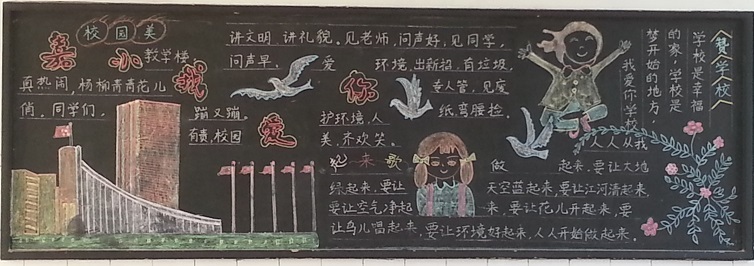 校园美
小教学楼
真热闹，杨柳青青花儿
俏，同学们，
蹦又蹦，
有责，校园
我
爱
你
讲文明，讲礼貌，见老师，问声好，见同学，
问声早。爱
环境，出新招，有垃圾
专人管，见废
纸弯腰捡。
护环境，人
美，齐欢笑。
来 歌
人人从我
做
起来，要让大地
绿起来，要让
天空蓝起来，要让江河清起来，
要让空气净起
来，要让花儿开起来，要
让鸟儿唱起来，要让环境好起来，人人开始做起来。
《赞学校》
学校是幸福
的家，学校是
梦开始的地方，
我爱你学校